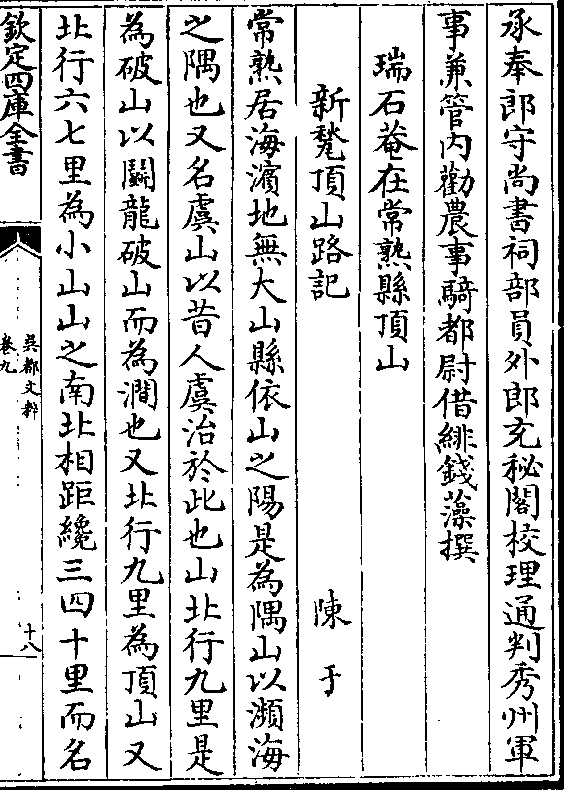 承奉郎守尚書祠部員外郎充秘閣校理通判秀州軍
事兼管内勸農事騎都尉借緋錢藻撰
瑞石菴在常熟縣頂山
新甃頂山路記 陳于
常熟居海濱地無大山縣依山之陽是為隅山以瀕海
之隅也又名虞山以昔人虞治於此也山北行九里是
為破山以鬬龍破山而為澗也又北行九里為頂山又
北行六七里為小山山之南北相距纔三四十里而名
欽定四庫全書
吳都文粹
卷九
十八